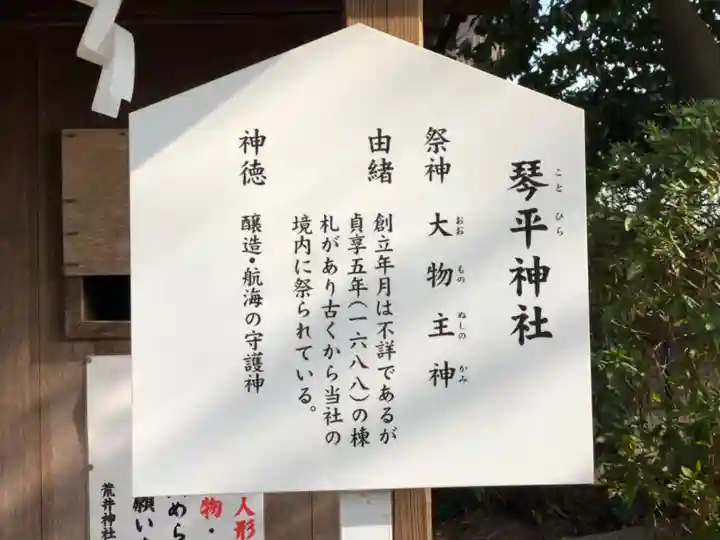 琴平神社
こと ひら
祭神 大物主神
おお もの ぬしの かみ
由緒 創立年月は不詳であるが
貞享五年(一六八八)の棟
札があり古くから当社の
境内に祭られている。
神徳 醸造・航海の守護神
人形
物・
められ
願い
荒井神社